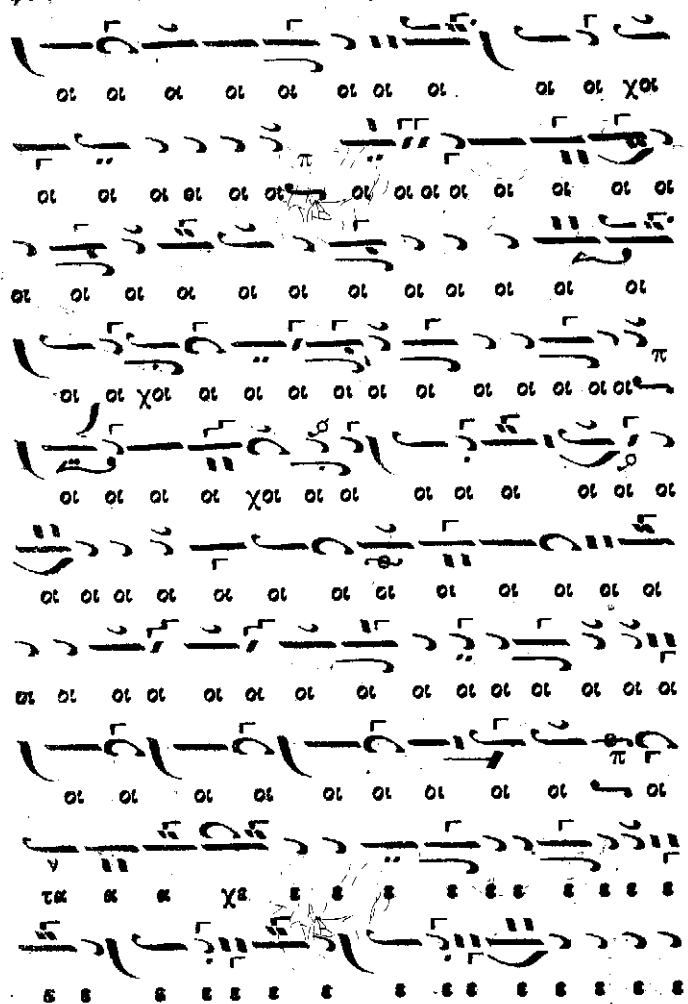 οι οι οι οι οι οι οι οι οι οι χοι
οι οι οι οι οι οι π οι οι οι οι οι οι οι οι
οι οι οι οι οι οι οι οι οι οι οι οι
οι οι χοι οι οι οι οι οι οι οι οι οι οι οι π
οι οι οι οι χοι οι οι οι οι οι οι οι οι
οι οι οι οι οι οι οι οι οι οι οι οι οι οι
οι οι οι οι οι οι οι οι οι οι οι οι οι οι οι
οι οι οι οι οι οι οι οι π οι
τα α α χε ε ε ε ε ε ε ε ε ε ε
ε ε ε ε ε ε ε ε ε ε ε ε ε ε ε